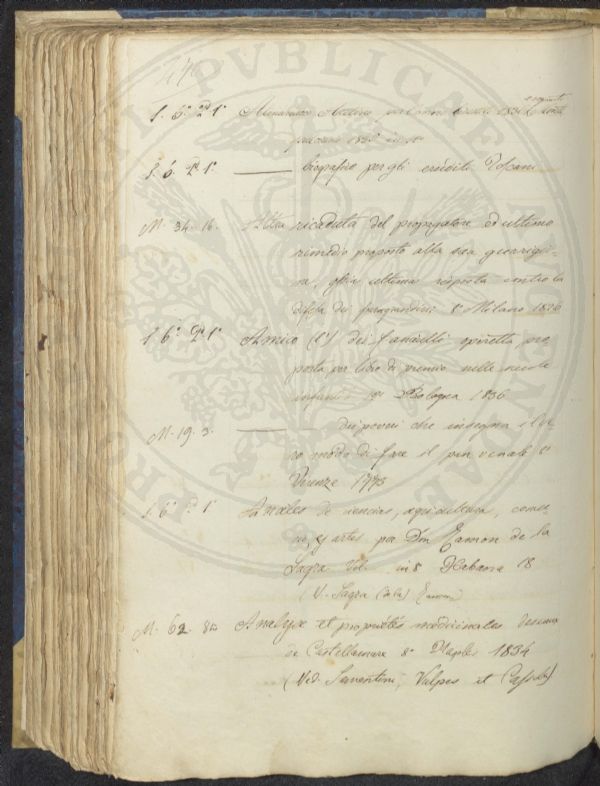 S. 6. P. 1°
gennaio 1836 in 8°
S. 6. P. 1° ——— biografico per gli eruditi Toscani
M. 34. 16. Altra ricaduta del propagatore ed ultimo
rimedio proposto alla sua guarigio-
ne, ossia ultima risposta contro la
difesa dei paragrandini 8° Milano 1826
S. 6° P. 1° Amico (l') dei fanciulli operetta pro
posta per libro di premio nelle scuole
infantili 12° Bologna 1836
M. 19. 3. ——— dei poveri che insegna il ve
ro modo di fare il pan venale 8°
Firenze 1773
S. 6° P. 1° Anales de ciencias, agricultura, comer
cio, y artes por Don Ramon de la
Sagra Vol. in 8 Habana 18
(V. Sagra (de la) Ramon)
M. 62. Analyse et proprietés medicinales des eaux
de Castellamare 8° Naples 1834
(Ved. Sementini, Vulpes et Cassola)
PUBLICAE